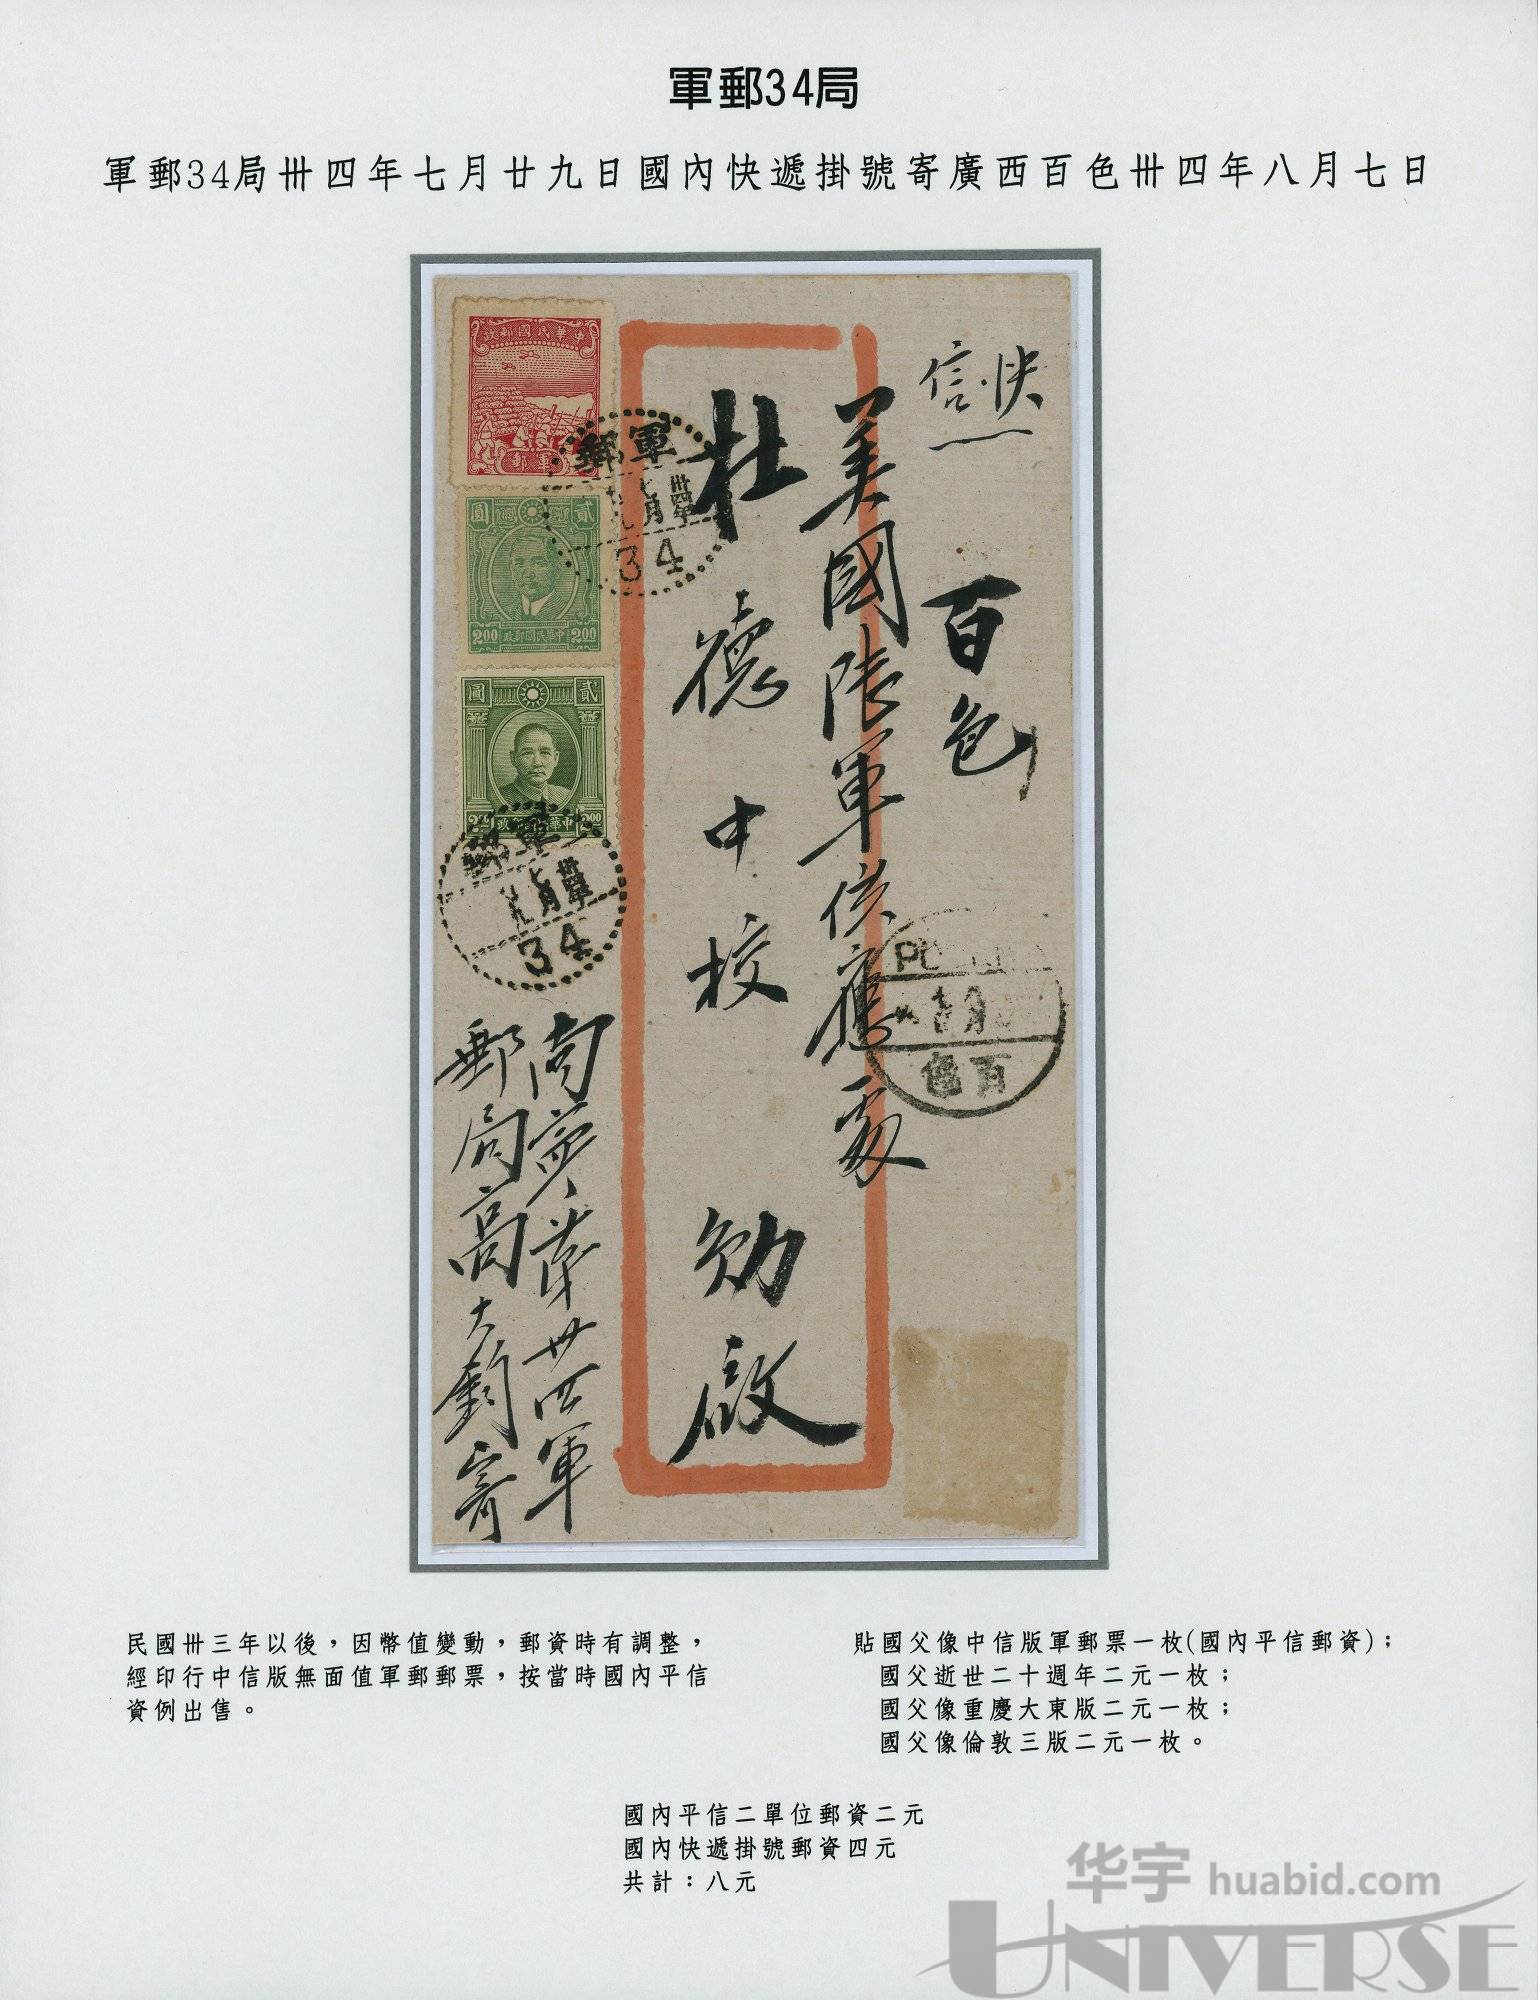 軍郵34局
軍郵34局卅四年七月廿九日國內快遞掛號寄廣西百色卅四年八月七日
快信
百色
美國陸軍供應處
杜德中校 勛啟
南寧第卅四軍
郵局高大釗寄
中華民國郵政
軍郵
貳圓
2.00 中華民國郵政 2.00
貳圓
2.00
軍郵
卅四年
七月
34
軍郵
卅四年
七月
34
百色
民國卅三年以後，因幣值變動，郵資時有調整，
經印行中信版無面值軍郵郵票，按當時國內平信
資例出售。
貼國父像中信版軍郵票一枚(國內平信郵資)；
國父逝世二十週年二元一枚；
國父像重慶大東版二元一枚；
國父像倫敦三版二元一枚。
國內平信二單位郵資二元
國內快遞掛號郵資四元
共計：八元
华宇 huabid.com
UNIVERSE